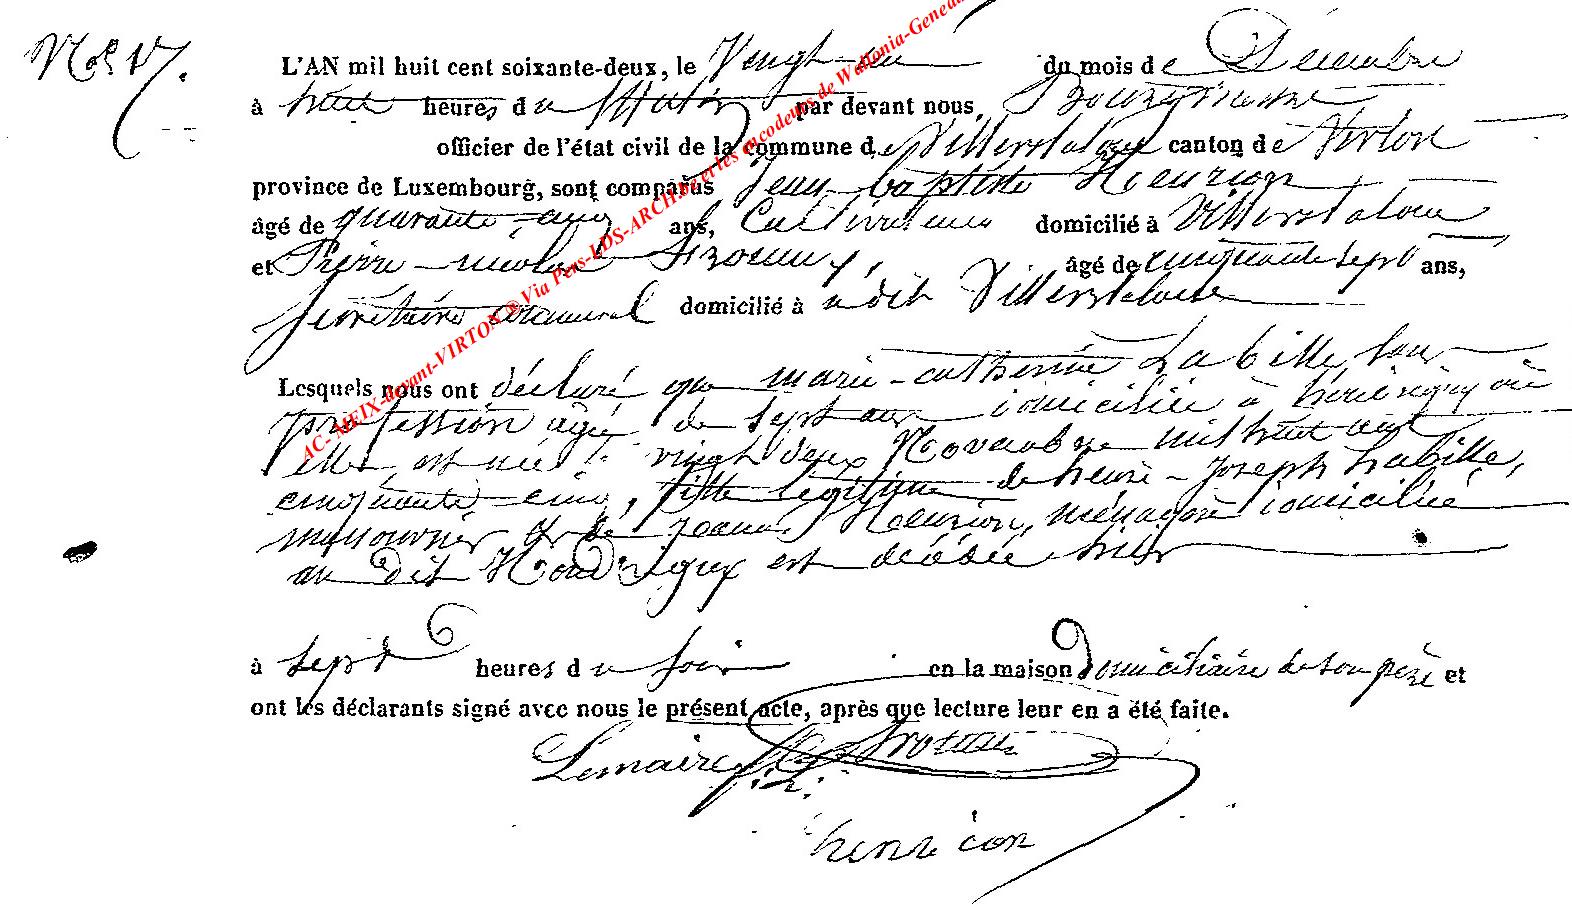 N° 17.
L'AN mil huit cent soixante-deux, le Vengt-un du mois de Décembre
à huit heures du Matin par devant nous, Bourgmestre
officier de l'état civil de la commune de Villerslaloue canton de Virton
province de Luxembourg, sont comparus Jean-baptiste Henrion
âgé de quarante-cinq ans, Cultivateur domicilié à Villerslaloue
et Pierre-nicolas âgé de cinquante sept ans,
secrétaire communal domicilié à udit Villerslaloue
Lesquels nous ont déclaré que marie-catherine Labille sans
profession agée de sept ans domiciliée à où
elle est née le vingt deux Novembre mil huit cent
cinquante-cinq, fille légitime de henri-Joseph Labille,
manouvrier et de jeanne Henrion, ménagère domiciliée
au dit Houdrigny est décédée hier
à sept heures du soir en la maison domiciliaire de son père et
ont les déclarants signé avec nous le présent acte, après que lecture leur en a été faite.
Lemaire
henrion
AC- MEIX-devant-VIRTON ® Via Pers-LDS-ARCH et les encodeurs de Wallonia-Genea